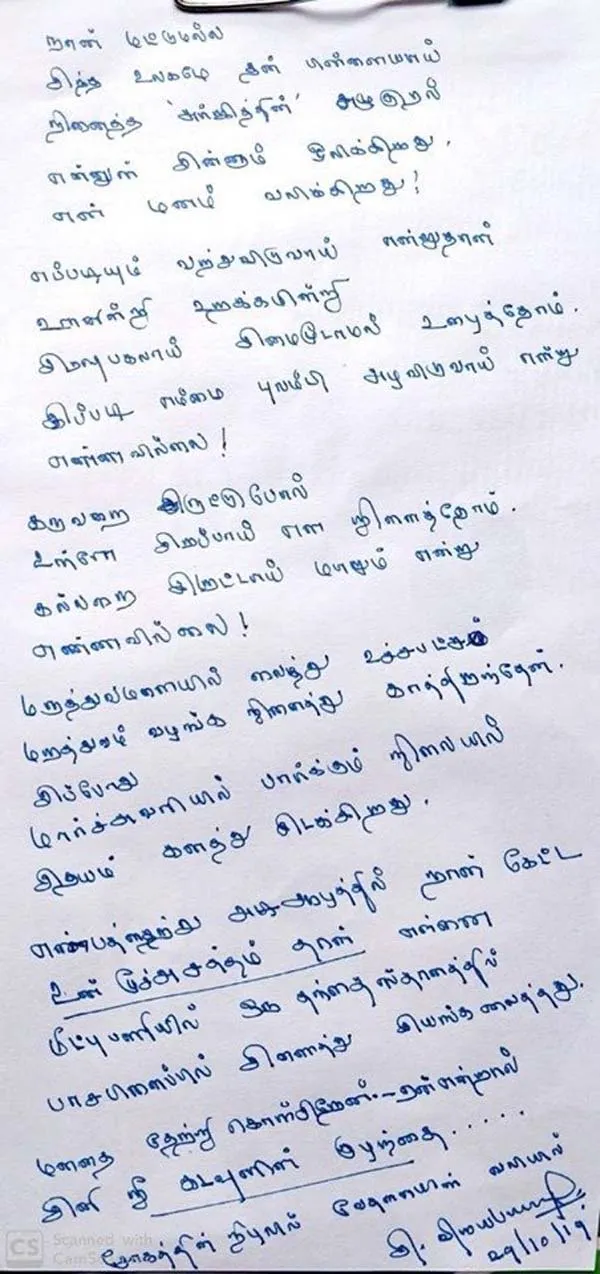 நான் மட்டுமல்ல
இந்த உலகமே தன் பிள்ளையாய்
நினைத்த 'சுர்ஜித்தின்' அழுகுரல்
என்னுள் இன்னும் ஒலிக்கிறது.
என் மனம் வலிக்கிறது!
எப்படியும் வந்துவிடுவாய் என்றுதான்
ஊணின்றி உறக்கமின்றி
இரவுபகலாய் இமைமூடாமல் உழைத்தோம்.
இப்படி எம்மை புலம்பி அழவிடுவாய் என்று
எண்ணவில்லை!
கருவறை இருட்டுபோல்
உள்ளே இருப்பாய் என நினைத்தோம்.
கல்லறை இருட்டாய் மாறும் என்று
எண்ணவில்லை!
மருத்துவமனையில் வைத்து உச்சபட்ச
மருத்துவம் வழங்க நினைத்து காத்திருந்தேன்.
இப்போது
மார்ச்சுவரியில் பார்க்கும் நிலையில்
இதயம் கனத்து கிடக்கிறது.
எண்பத்தைந்து அடி ஆழத்தில் நான் கேட்ட
உன் மூச்சு சத்தம் தான் என்னை
மீட்புபணியில் ஒரு தந்தைஸ்தானத்தில்
பாசபிணைப்பில் இணைத்து இயங்கவைத்தது.
மனதை தேற்றி கொள்கிறேன்... ஏன்என்றால்
இனி நீ கடவுளின் குழந்தை......
சோகத்தின் நிழலில் வேதனையின் வலியில்
29/10/19
CS Scanned with
CamSc